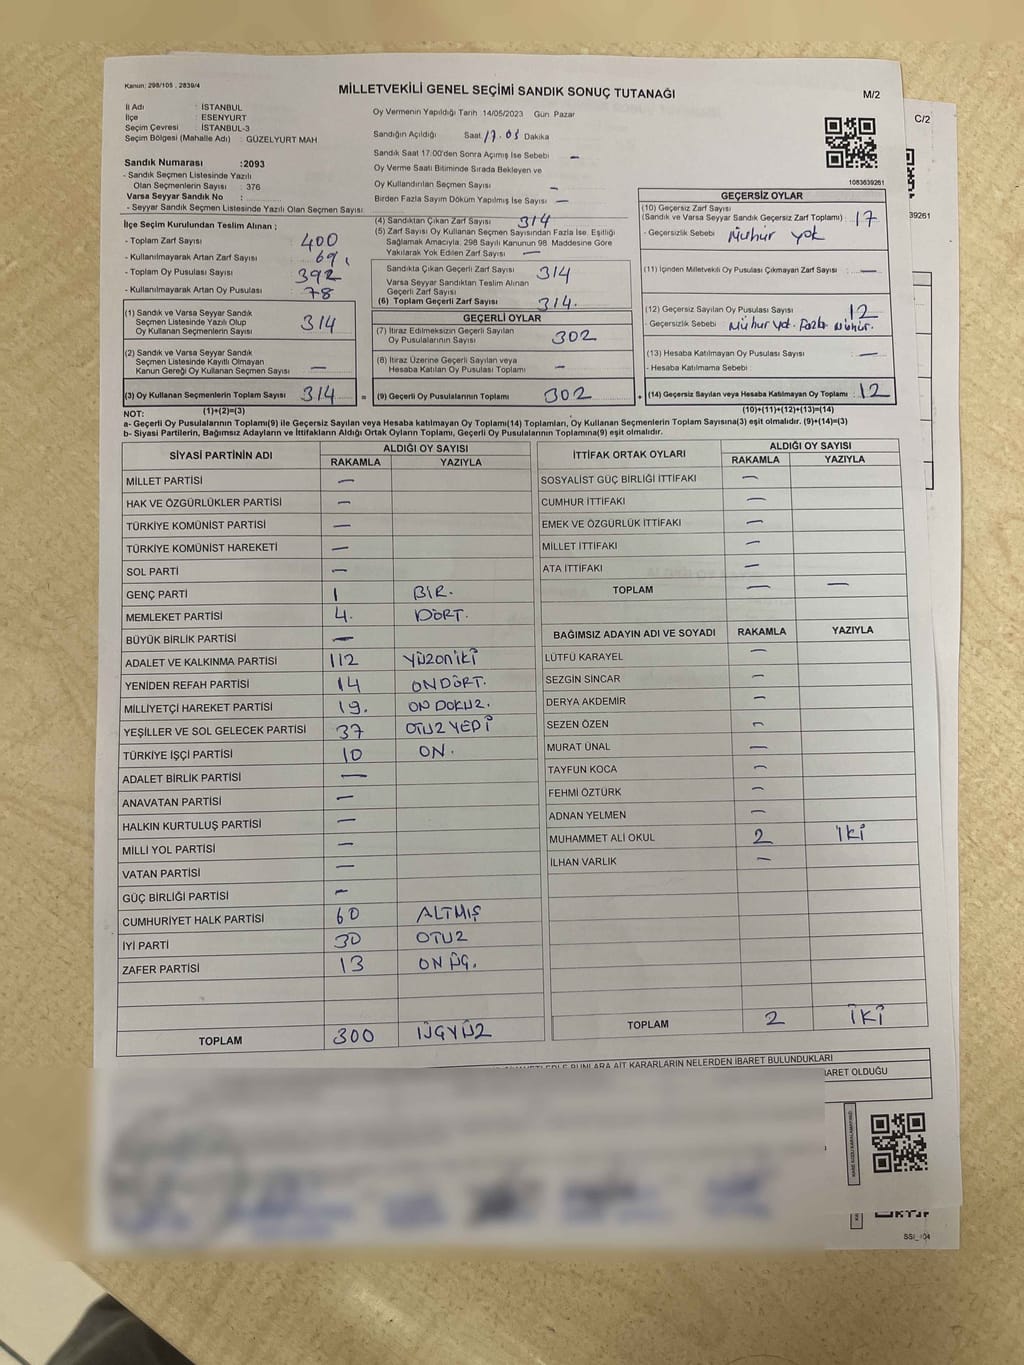 Kanun: 298/105 , 2839/4
MİLLETVEKİLİ GENEL SEÇİMİ SANDIK SONUÇ TUTANAĞI
M/2
C/2
İl Adı : İSTANBUL
İlçe : ESENYURT
Seçim Çevresi : İSTANBUL-3
Seçim Bölgesi (Mahalle Adı) : GÜZELYURT MAH
Sandık Numarası :2093
- Sandık Seçmen Listesinde Yazılı
Olan Seçmenlerin Sayısı : 376
Varsa Seyyar Sandık No :
- Seyyar Sandık Seçmen Listesinde Yazılı Olan Seçmen Sayısı:
İlçe Seçim Kurulundan Teslim Alınan ;
- Toplam Zarf Sayısı : 400
- Kullanılmayarak Artan Zarf Sayısı : 69
- Toplam Oy Pusulası Sayısı : 392
- Kullanılmayarak Artan Oy Pusulası : 78
(1) Sandık ve Varsa Seyyar Sandık
Seçmen Listesinde Yazılı Olup
Oy Kullanan Seçmenlerin Sayısı : 314
(2) Sandık ve Varsa Seyyar Sandık
Seçmen Listesinde Kayıtlı Olmayan
Kanun Gereği Oy Kullanan Seçmen Sayısı : —
(3) Oy Kullanan Seçmenlerin Toplam Sayısı : 314
Oy Vermenin Yapıldığı Tarih 14/05/2023 Gün Pazar
Sandığın Açıldığı Saat 17.05 Dakika
Sandık Saat 17:00'den Sonra Açımış İse Sebebi —
Oy Verme Saati Bitiminde Sırada Bekleyen ve
Oy Kullandırılan Seçmen Sayısı : —
Birden Fazla Sayım Döküm Yapılmış İse Sayısı : —
(4) Sandıktan Çıkan Zarf Sayısı : 314
(5) Zarf Sayısı Oy Kullanan Seçmen Sayısından Fazla İse, Eşitliği
Sağlamak Amacıyla, 298 Sayılı Kanunun 98. Maddesine Göre
Yakılarak Yok Edilen Zarf Sayısı : —
Sandıkta Çıkan Geçerli Zarf Sayısı : 314
Varsa Seyyar Sandıktan Teslim Alınan
Geçerli Zarf Sayısı
(6) Toplam Geçerli Zarf Sayısı : 314.
GEÇERLİ OYLAR
(7) İtiraz Edilmeksizin Geçerli Sayılan
Oy Pusulalarının Sayısı : 302
(8) İtiraz Üzerine Geçerli Sayılan veya
Hesaba Katılan Oy Pusulası Toplamı : —
(9) Geçerli Oy Pusulalarının Toplamı : 302
1083639261
39261
GEÇERSİZ OYLAR
(10) Geçersiz Zarf Sayısı
(Sandık ve Varsa Seyyar Sandık Geçersiz Zarf Toplamı) : 17
- Geçersizlik Sebebi : Mühür yok
(11) İçinden Milletvekili Oy Pusulası Çıkmayan Zarf Sayısı : —
(12) Geçersiz Sayılan Oy Pusulası Sayısı : 12
- Geçersizlik Sebebi : Mühür yok. Fazla Mühür.
(13) Hesaba Katılmayan Oy Pusulası Sayısı : —
- Hesaba Katılmama Sebebi :
(14) Geçersiz Sayılan veya Hesaba Katılmayan Oy Toplamı : 12
NOT: (1)+(2)=(3) (10)+(11)+(12)+(13)=(14)
a- Geçerli Oy Pusulalarının Toplamı(9) ile Geçersiz Sayılan veya Hesaba katılmayan Oy Toplamı(14) Toplamları, Oy Kullanan Seçmenlerin Toplam Sayısına(3) eşit olmalıdır. (9)+(14)=(3)
b- Siyasi Partilerin, Bağımsız Adayların ve İttifakların Aldığı Ortak Oyların Toplamı, Geçerli Oy Pusulalarının Toplamına(9) eşit olmalıdır.
SİYASİ PARTİNİN ADI ALDIĞI OY SAYISI
RAKAMLA YAZIYLA
MİLLET PARTİSİ —
HAK VE ÖZGÜRLÜKLER PARTİSİ —
TÜRKİYE KOMÜNİST PARTİSİ —
TÜRKİYE KOMÜNİST HAREKETİ —
SOL PARTİ —
GENÇ PARTİ 1 BİR.
MEMLEKET PARTİSİ 4. DÖRT.
BÜYÜK BİRLİK PARTİSİ —
ADALET VE KALKINMA PARTİSİ 112 YÜZONİKİ
YENİDEN REFAH PARTİSİ 14 ONDÖRT.
MİLLİYETÇİ HAREKET PARTİSİ 19. ON DOKUZ.
YEŞİLLER VE SOL GELECEK PARTİSİ 37 OTUZ YEDİ
TÜRKİYE İŞÇİ PARTİSİ 10 ON.
ADALET BİRLİK PARTİSİ —
ANAVATAN PARTİSİ —
HALKIN KURTULUŞ PARTİSİ —
MİLLİ YOL PARTİSİ —
VATAN PARTİSİ —
GÜÇ BİRLİĞİ PARTİSİ —
CUMHURİYET HALK PARTİSİ 60 ALTMIŞ
İYİ PARTİ 30 OTUZ
ZAFER PARTİSİ 13 ON ÜÇ.
TOPLAM 300 ÜÇYÜZ
İTTİFAK ORTAK OYLARI ALDIĞI OY SAYISI
RAKAMLA YAZIYLA
SOSYALİST GÜÇ BİRLİĞİ İTTİFAKI —
CUMHUR İTTİFAKI —
EMEK VE ÖZGÜRLÜK İTTİFAKI —
MİLLET İTTİFAKI —
ATA İTTİFAKI —
TOPLAM — —
BAĞIMSIZ ADAYIN ADI VE SOYADI RAKAMLA YAZIYLA
LÜTFÜ KARAYEL —
SEZGİN SİNCAR —
DERYA AKDEMİR —
SEZEN ÖZEN —
MURAT ÜNAL —
TAYFUN KOCA —
FEHMİ ÖZTÜRK —
ADNAN YELMEN —
MUHAMMET ALİ OKUL 2 İKİ
İLHAN VARLIK —
TOPLAM 2 İKİ
BUNLARA AİT KARARLARIN NELERDEN İBARET BULUNDUKLARI
BARET OLDUĞU